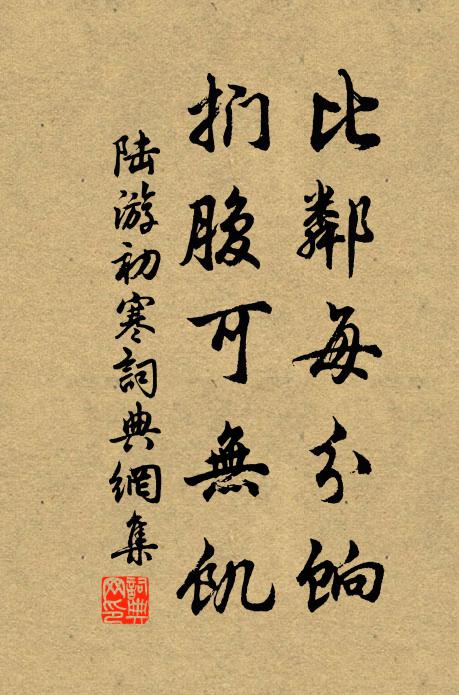 比鄰每分餉
捫腹可無飢
陸游初寒詞典網集
詞典
网印